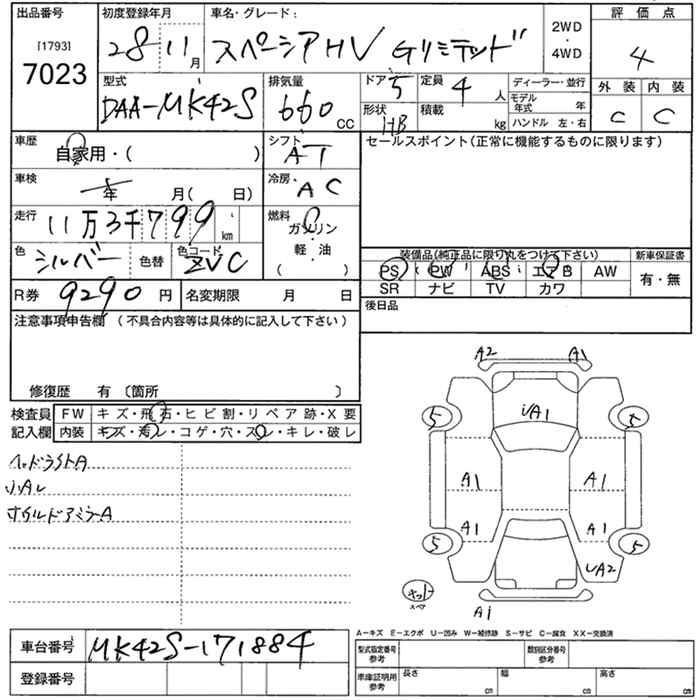 出品番号 初度登録年月 車名・グレード： 評価点
[1793]
7023 28-11月 スペーシアHV Gリミテッド 2WD・4WD 4
型式 排気量 ドア 定員 ディーラー・並行 外装 内装
DAA-MK42S 660CC 5 4人 モデル年式 年
形状 HB 積載 kg ハンドル 左・右 C C
車歴 シフト セールスポイント(正常に機能するものに限ります)
自家用・( ) AT
車検 冷房
年 月(日) AC
走行 燃料
11万3千799km ガソリン・軽・油
色 シルバー 色替 色コード ZVC
装備品(純正品に限り丸をつけて下さい) 新車保証書
PS PW ABS エアB AW 有・無
SR ナビ TV カワ
R券 9290円 名変期限 月 日 後日品
注意事項申告欄(不具合内容等は具体的に記入して下さい)
修復歴 有 〔箇所 〕
検査員記入欄 FW キズ・飛石・ヒビ割・リペア跡・X要
内装 キズ・汚レ・コゲ・穴・スレ・キレ・破レ
ヘッドライトA
小A
A2 A1
5 5
A1
A1 A1
A1 A1
5 5
A2
A1
A－キズ E－エクボ U－凹み W－補修跡 S－サビ C－腐食 XX－交換済
車台番号 MK42S-171884
型式指定番号 参考 類別区分番号 参考
登録番号
車庫証明用 参考 長さ cm 幅 cm 高さ cm